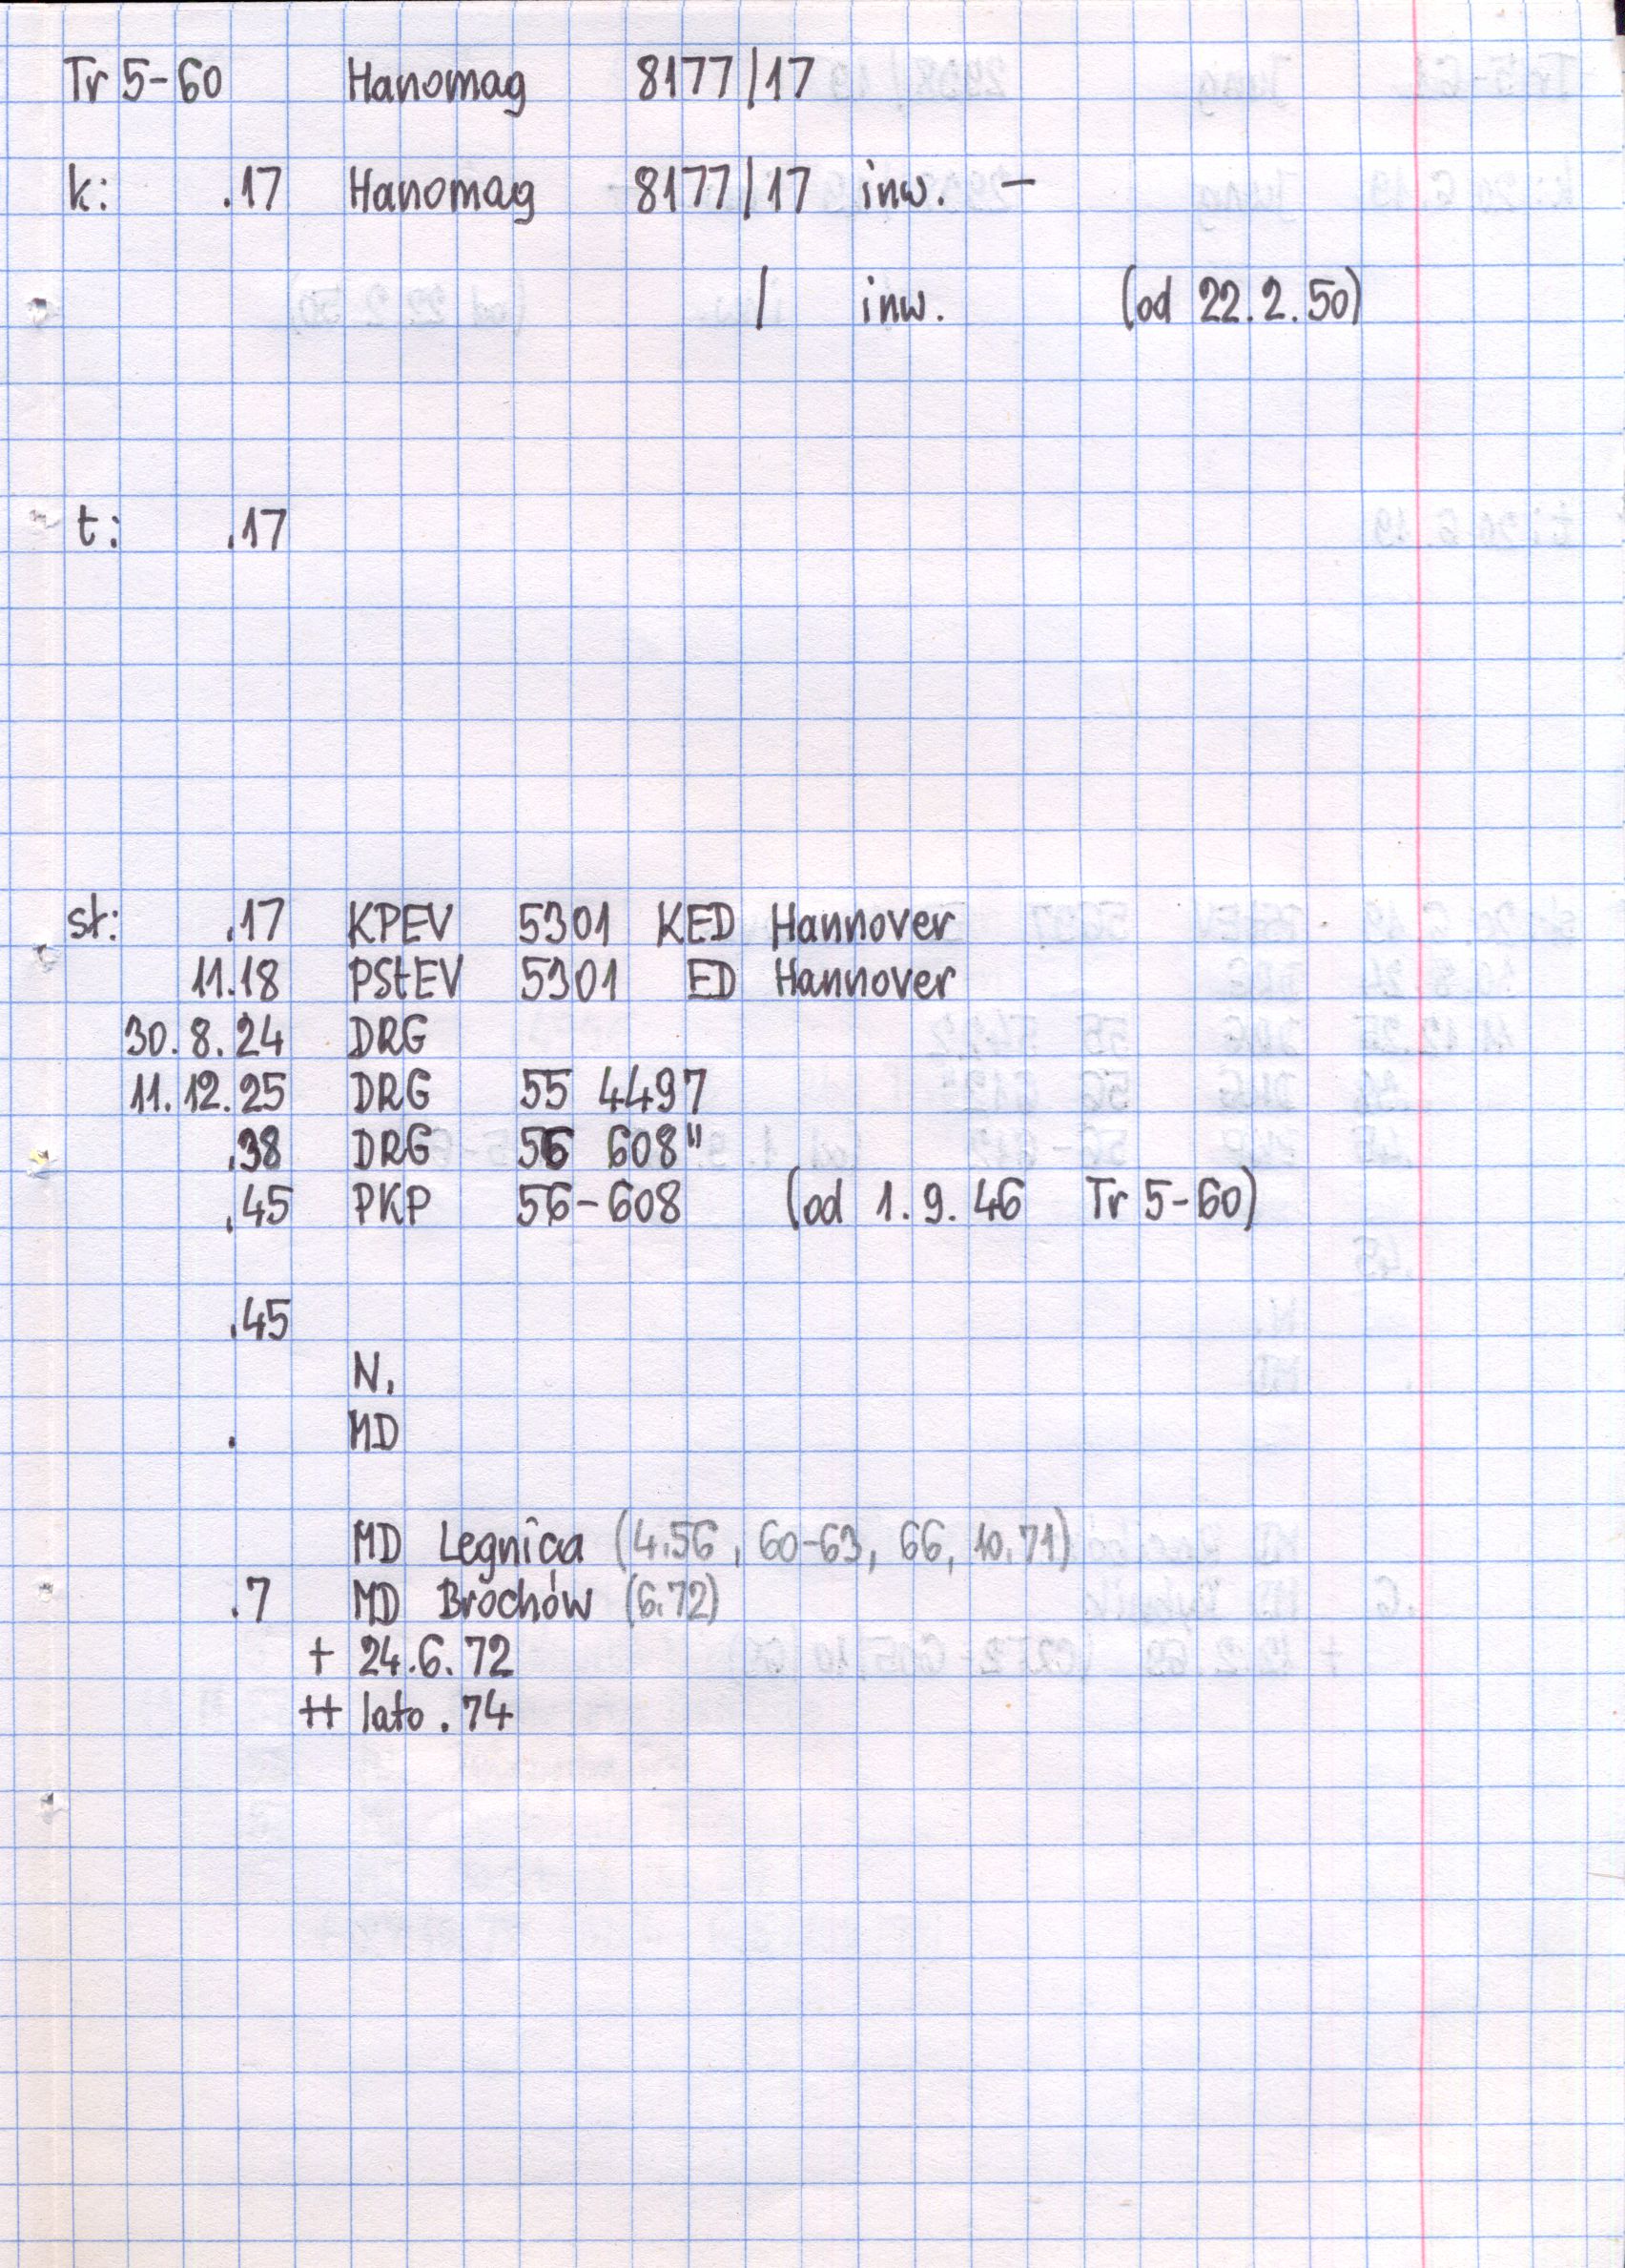 Tr 5-60 Hanomag 8177/17
k: .17 Hanomag 8177/17 inw. –
/ inw. (od 22.2.50)
t: .17
st: .17 KPEV 5301 KED Hannover
11.18 PStEV 5301 ED Hannover
30.8.24 DRG
11.12.25 DRG 55 4497
.38 DRG 56 608"
.45 PKP 56-608 (od 1.9.46 Tr 5-60)
.45
N.
. MD
MD Legnica (4.56, 60-63, 66, 10.71)
.7 MD Brochów (6.72)
+ 24.6.72
++ lato .74